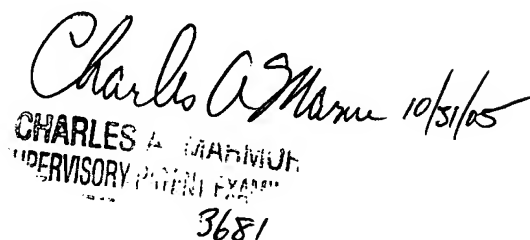 Charles A Marmor 10/31/05
CHARLES A. MARMOR
SUPERVISORY PATENT EXAM
3681